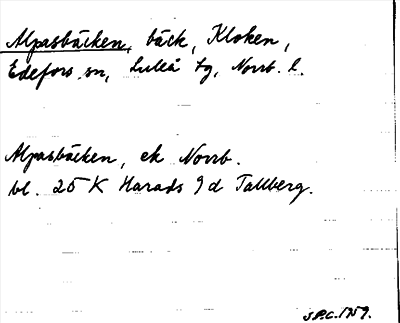 Alpasbäcken, bäck, Kloken,
Edefors sn, Luleå tg, Norrb. l.
Alpasbäcken, ek Norrb.
bl. 25 K Harads 9 d Tallberg.
S.P.C. 1959.